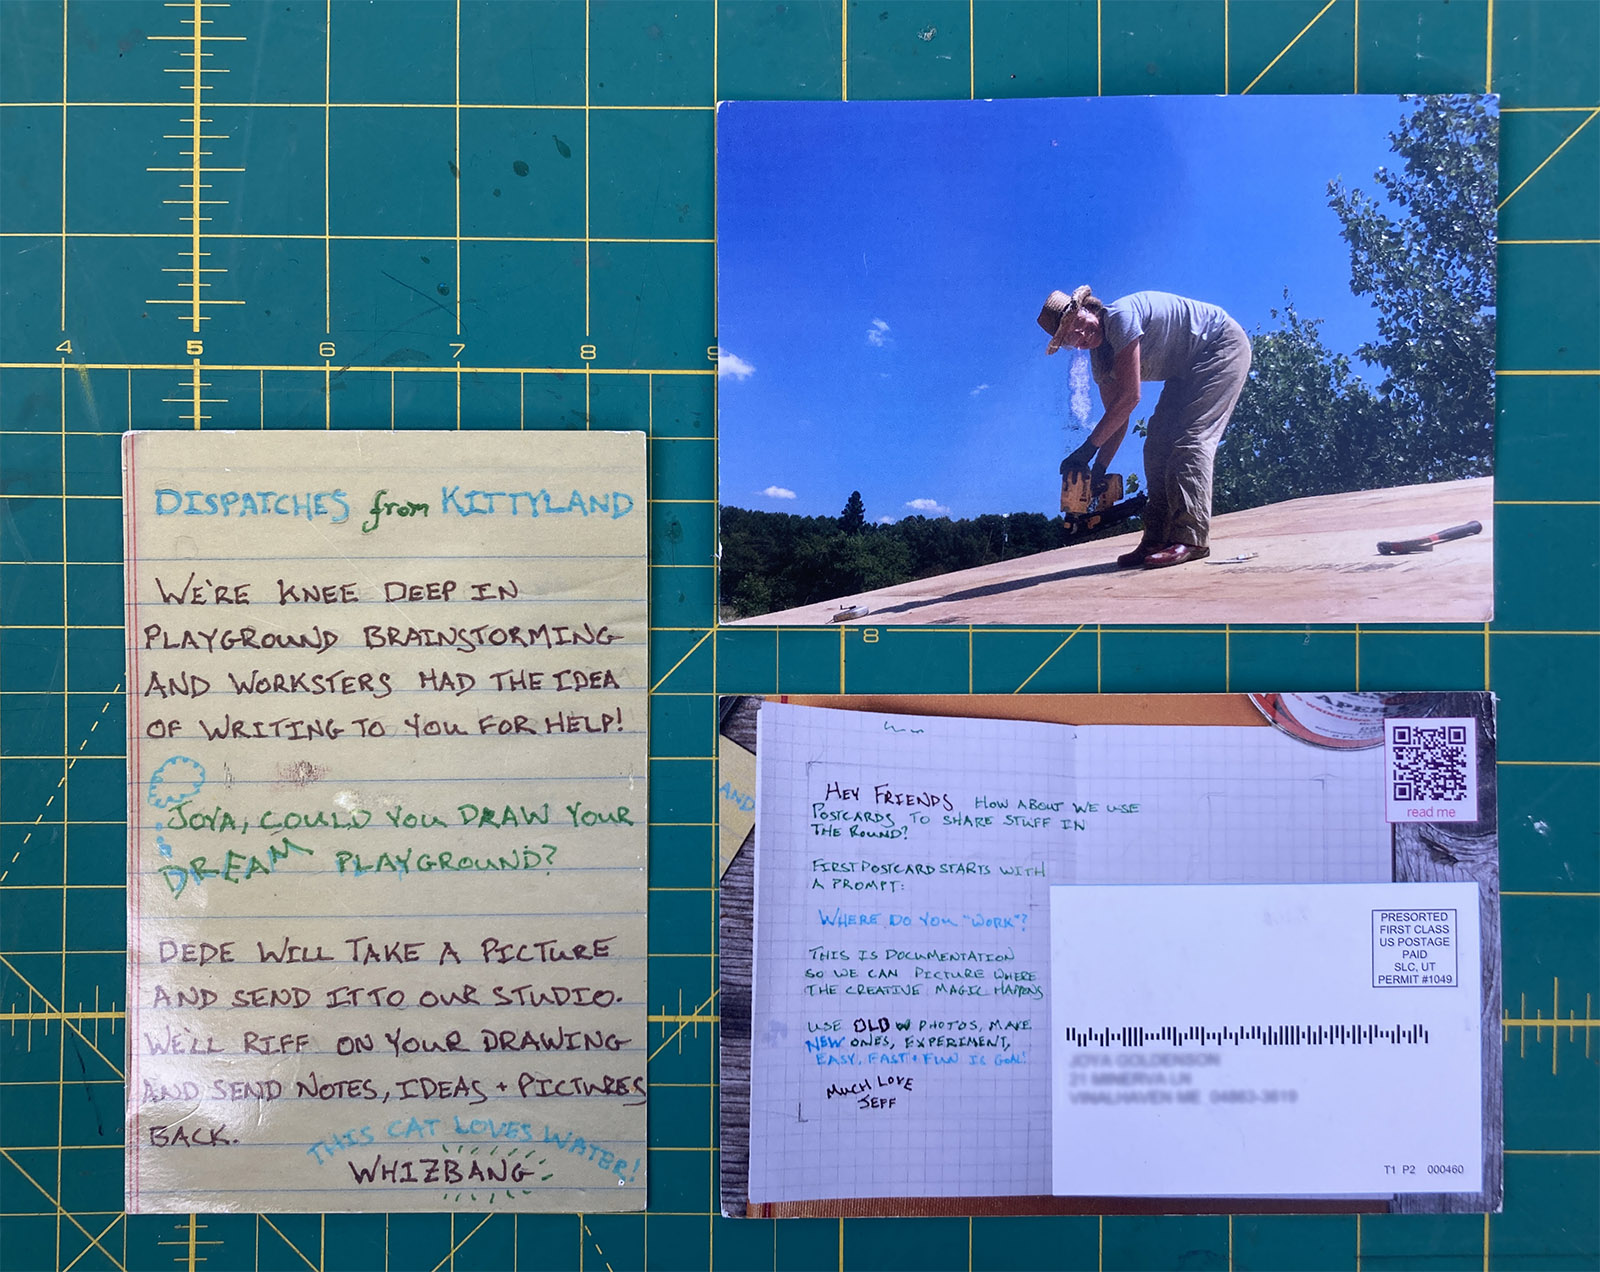 4 5 6 7 8 9
8
DISPATCHES from KITTYLAND
WE'RE KNEE DEEP IN
PLAYGROUND BRAINSTORMING
AND WORKSTERS HAD THE IDEA
OF WRITING TO YOU FOR HELP!
JOYA, COULD YOU DRAW YOUR
DREAM PLAYGROUND?
DEDE WILL TAKE A PICTURE
AND SEND IT TO OUR STUDIO.
WE'LL RIFF ON YOUR DRAWING
AND SEND NOTES, IDEAS + PICTURES
BACK.
THIS CAT LOVES WATER!
WHIZBANG
AND
HEY FRIENDS HOW ABOUT WE USE
POSTCARDS TO SHARE STUFF IN
THE ROUND?
FIRST POSTCARD STARTS WITH
A PROMPT:
WHERE DO YOU "WORK"?
THIS IS DOCUMENTATION
SO WE CAN PICTURE WHERE
THE CREATIVE MAGIC HAPPENS
USE OLD PHOTOS, MAKE
NEW ONES, EXPERIMENT,
EASY, FAST + FUN IS GOAL!
MUCH LOVE
JEFF
read me
PRESORTED
FIRST CLASS
US POSTAGE
PAID
SLC, UT
PERMIT #1049
T1 P2 000460